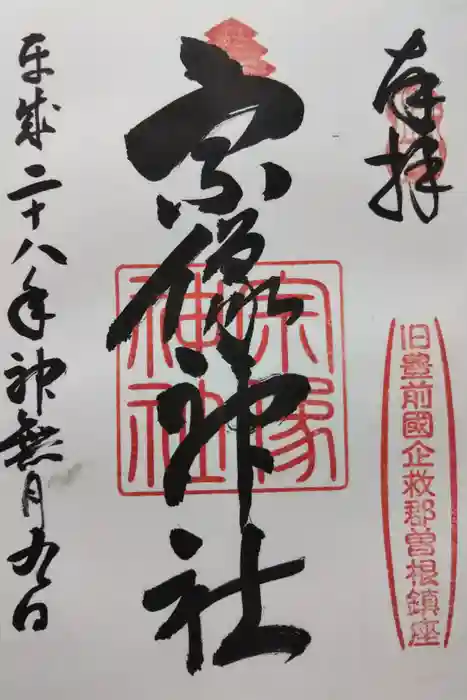 奉拝
旧豊前國企救郡曽根鎮座
宗像神社
宗像
神社
平成二十八年神無月九日